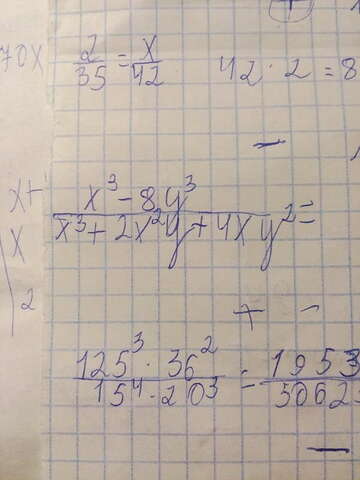 70x 2/35 = x/42 42 · 2 = 8
x+ x³ - 8y³
x x³ + 2x²y + 4xy² =
2
+ -
125³ · 36² / 15⁴ · 20³ = 1953 / 50623